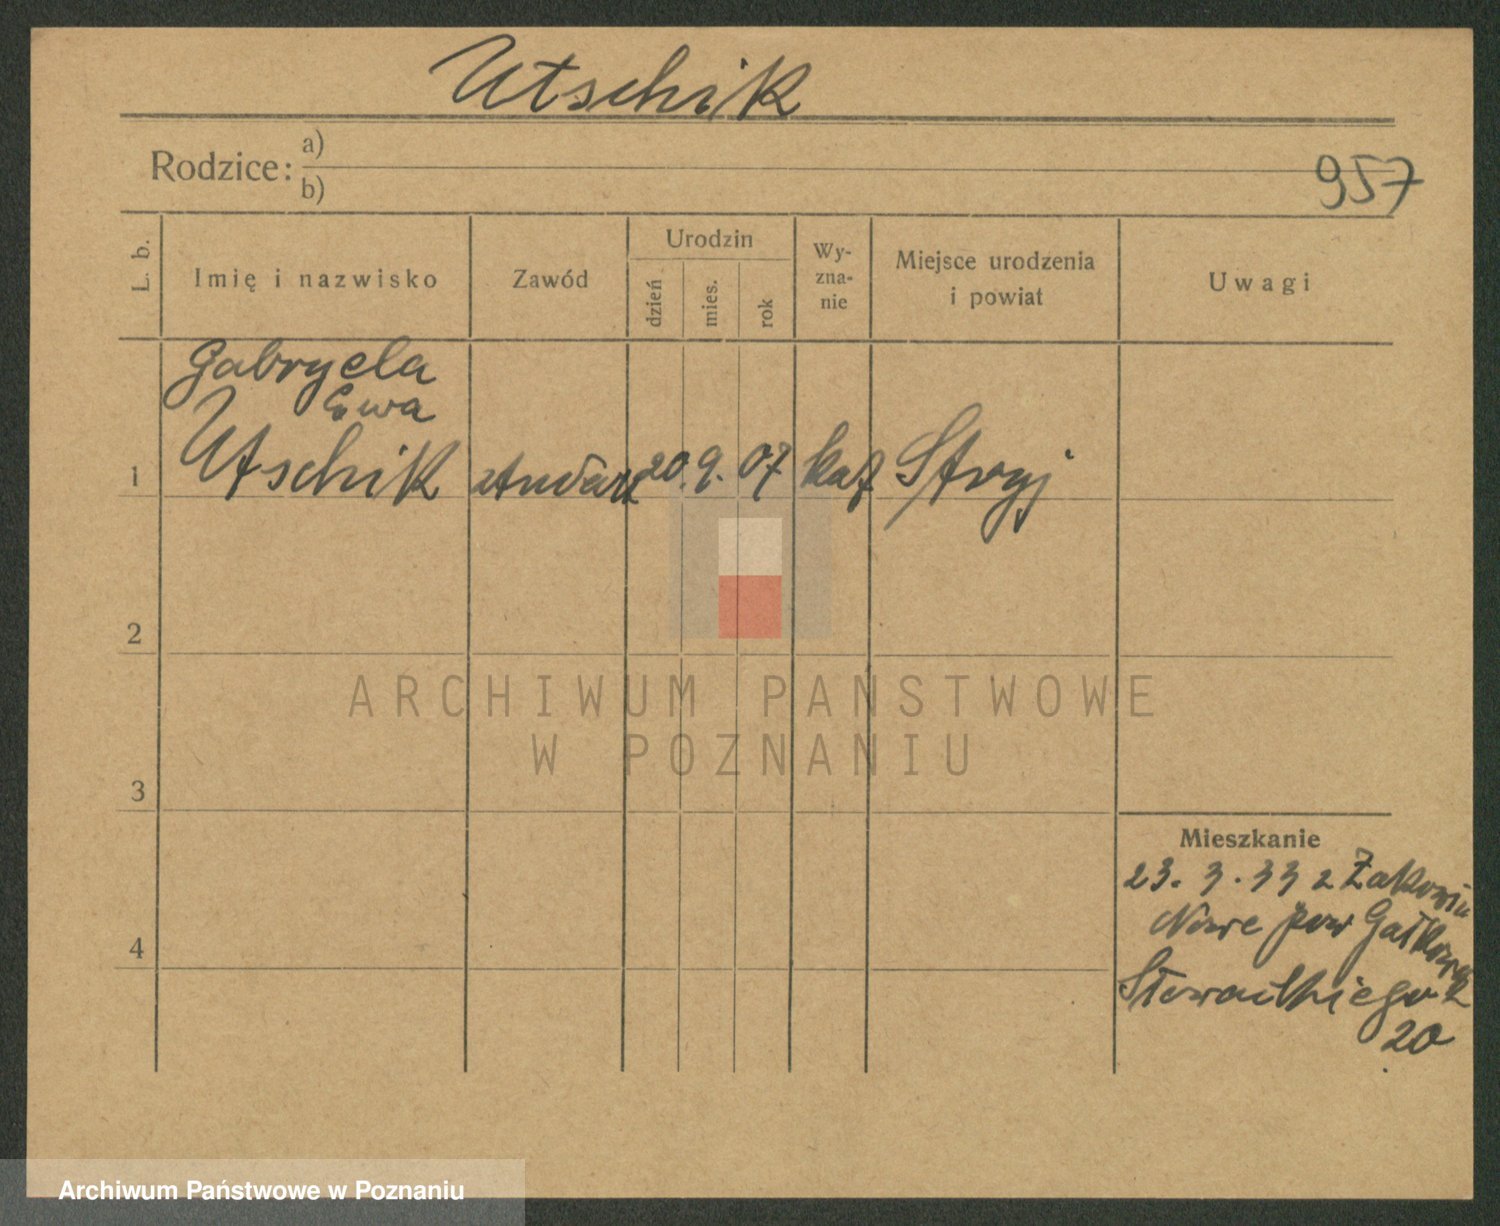 Utschik
Rodzice: a)
b)
957
L. b.
Imię i nazwisko
Zawód
Urodzin
dzień
mies.
rok
Wy-
zna-
nie
Miejsce urodzenia
i powiat
Uwagi
Gabryela
Ewa
1 Utschik 20. 9. 07 kat Stryj
2
3
4
Mieszkanie
23. 3. 33 z
Nowe pow
20
ARCHIWUM PAŃSTWOWE
W POZNANIU
Archiwum Państwowe w Poznaniu